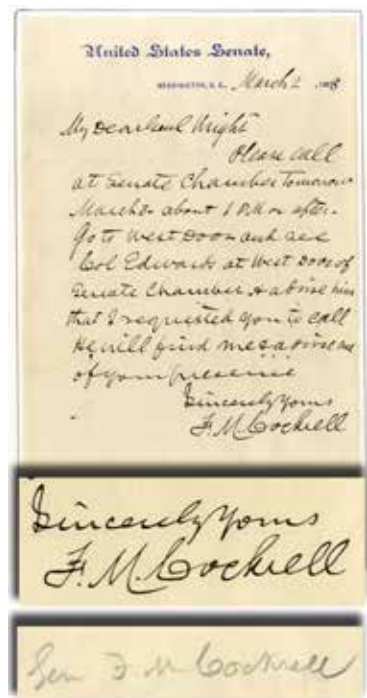 United States Senate,
WASHINGTON, D. C. March 2
My Dear Wright
Please call
at Senate Chamber tomorrow
March about 1 P.M or after.
Go to West Door and see
Col Edwards at West Door of
Senate Chamber & advise him
that I requested you to call
He will find me & advise me
of your presence
Sincerely Yours
F. M. Cockrell
Sincerely Yours
F. M. Cockrell
Gen F M Cockrell